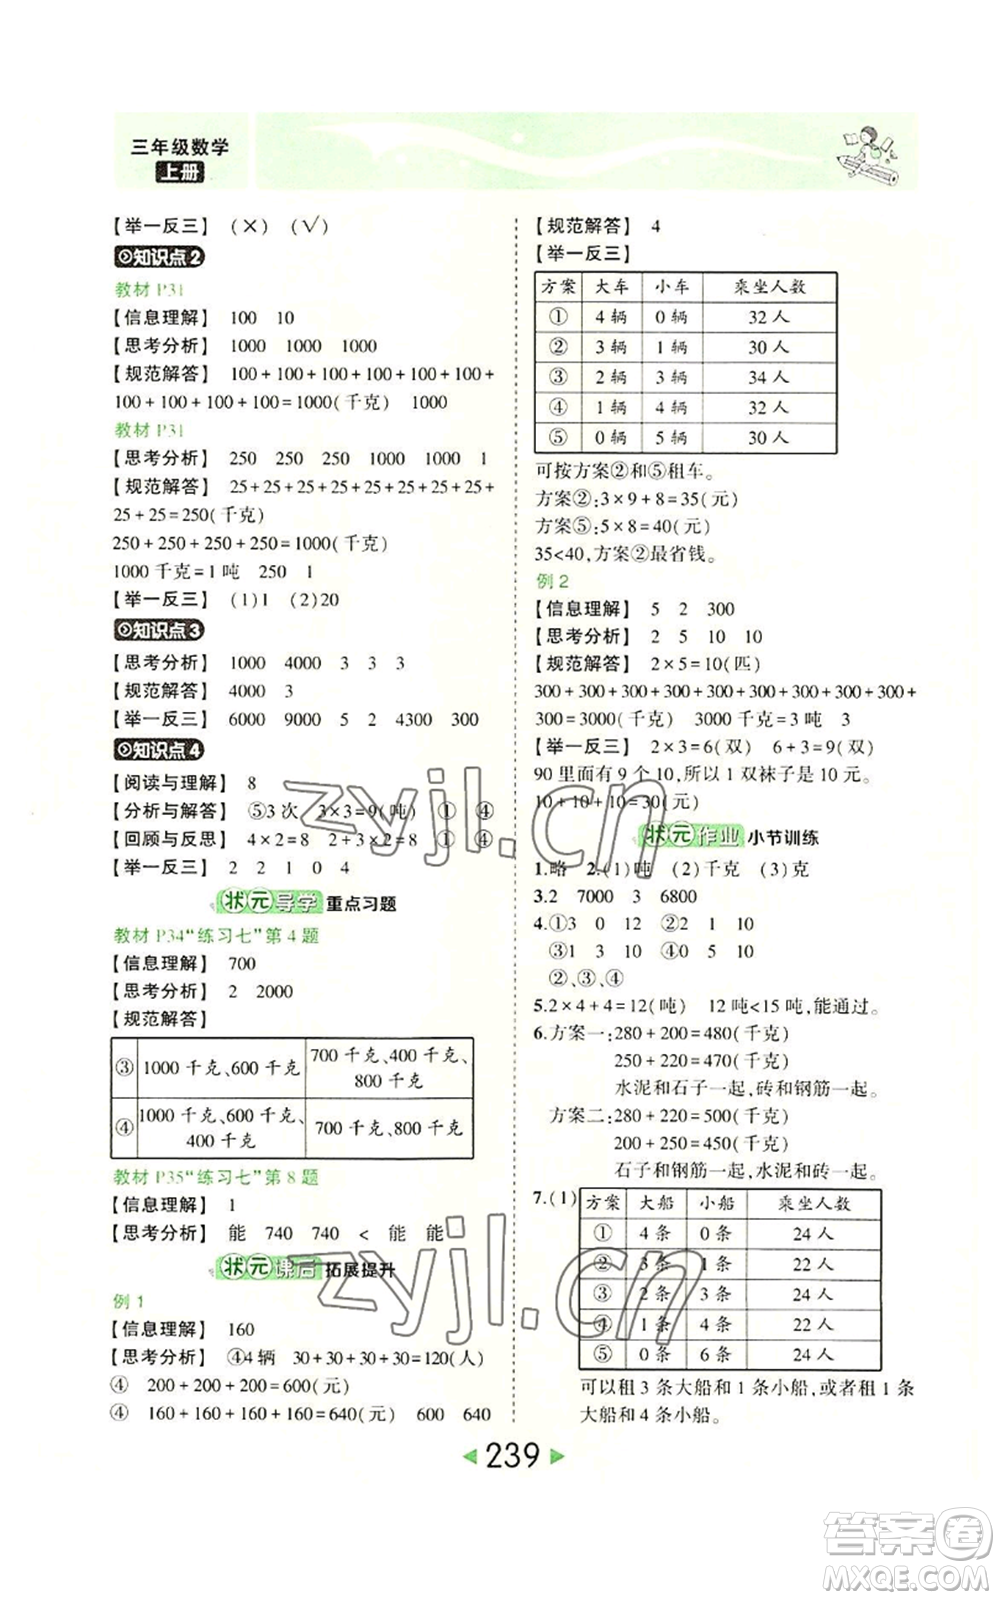 三年级数学
上册
【举一反三】 (×) (√)
知识点2
教材 P31
【信息理解】 100 10
【思考分析】 1000 1000 1000
【规范解答】 100+100+100+100+100+100+
100+100+100+100=1000(千克) 1000
教材 P31
【思考分析】 250 250 250 1000 1000 1
【规范解答】 25+25+25+25+25+25+25+25+
25+25=250(千克)
250+250+250+250=1000(千克)
1000千克=1吨 250 1
【举一反三】 (1)1 (2)20
知识点3
【思考分析】 1000 4000 3 3 3
【规范解答】 4000 3
【举一反三】 6000 9000 5 2 4300 300
知识点4
【阅读与理解】 8
【分析与解答】 ⑤3次 3×3=9(吨) ① ④
【回顾与反思】 4×2=8 2+3×2=8 ① ④
【举一反三】 2 2 1 0 4
状元导学 重点习题
教材 P34“练习七”第4题
【信息理解】 700
【思考分析】 2 2000
【规范解答】
③ 1000千克、600千克 700千克、400千克、
800千克
④ 1000千克、600千克、
400千克 700千克、800千克
教材 P35“练习七”第8题
【信息理解】 1
【思考分析】 能 740 740 < 能 能
状元课后 拓展提升
例1
【信息理解】 160
【思考分析】 ④4辆 30+30+30+30=120(人)
④ 200+200+200=600(元)
④ 160+160+160+160=640(元) 600 640
【规范解答】 4
【举一反三】
方案 大车 小车 乘坐人数
① 4辆 0辆 32人
② 3辆 1辆 30人
③ 2辆 3辆 34人
④ 1辆 4辆 32人
⑤ 0辆 5辆 30人
可按方案②和⑤租车。
方案②:3×9+8=35(元)
方案⑤:5×8=40(元)
35<40,方案②最省钱。
例2
【信息理解】 5 2 300
【思考分析】 2 5 10 10
【规范解答】 2×5=10(匹)
300+300+300+300+300+300+300+300+300+
300=3000(千克) 3000千克=3吨 3
【举一反三】 2×3=6(双) 6+3=9(双)
90里面有9个10,所以1双袜子是10元。
10+10+10=30(元)
状元作业 小节训练
1.略 2.(1)吨 (2)千克 (3)克
3.2 7000 3 6800
4.①3 0 12 ②2 1 10
③1 3 10 ④0 5 10
②、③、④
5.2×4+4=12(吨) 12吨<15吨,能通过。
6.方案一:280+200=480(千克)
250+220=470(千克)
水泥和石子一起,砖和钢筋一起。
方案二:280+220=500(千克)
200+250=450(千克)
石子和钢筋一起,水泥和砖一起。
7.(1) 方案 大船 小船 乘坐人数
① 4条 0条 24人
② 3条 1条 22人
③ 2条 3条 24人
④ 1条 4条 22人
⑤ 0条 6条 24人
可以租3条大船和1条小船,或者租1条
大船和4条小船。
239
zyjl.cn
zyjl.cn
答案卷
MXQE.COM